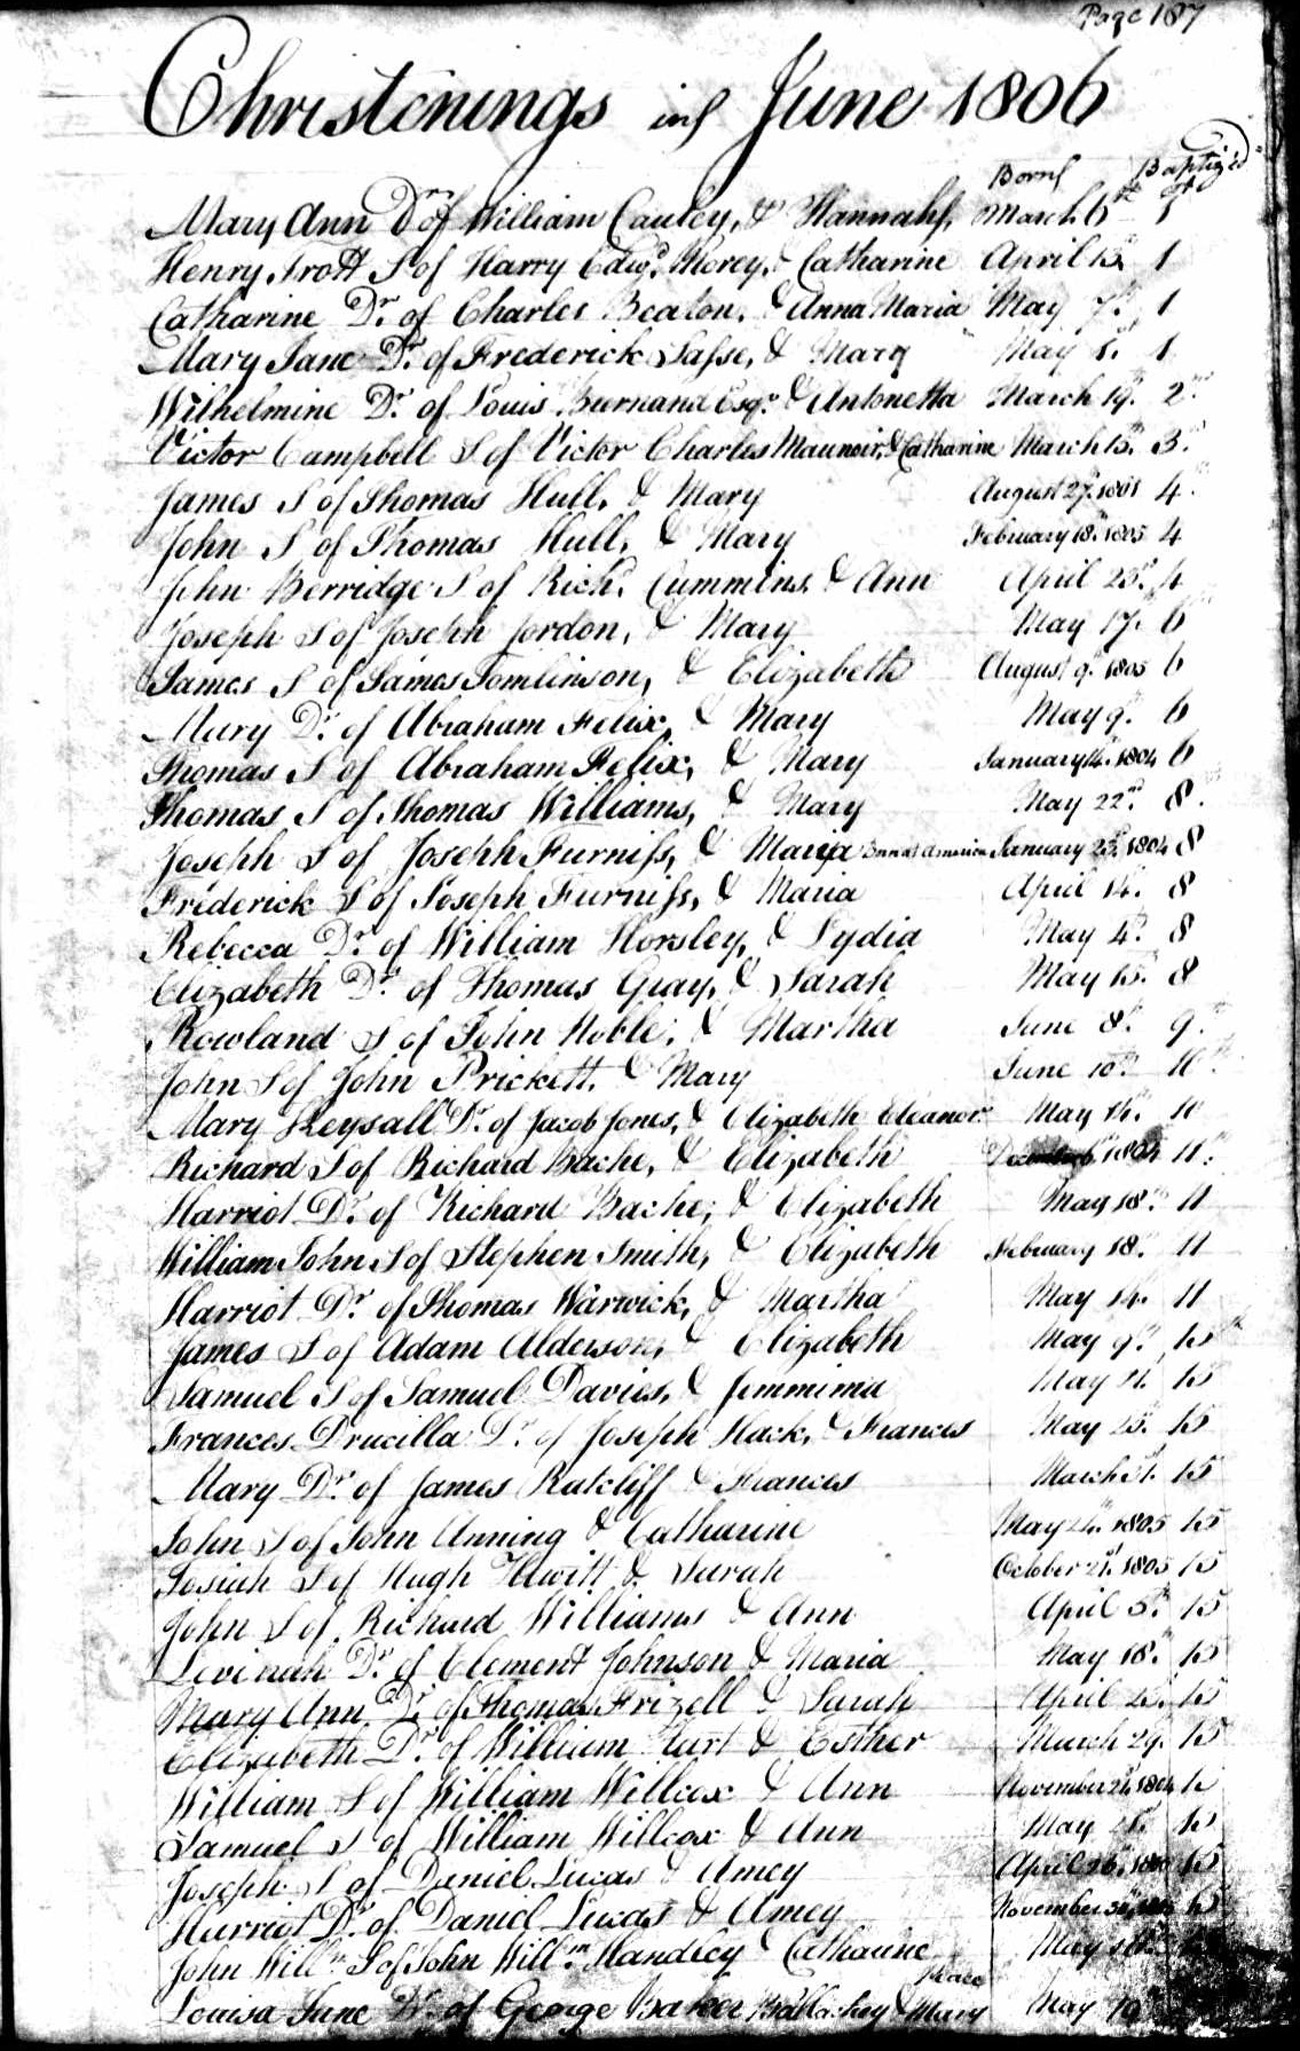 Page 187
Christenings in June 1806
Born Baptiz'd
Mary Ann Dr. of William Cauley, & Hannah, March 6th 1st
Henry Trott S of Harry Edwd. Morey, & Catharine April 13th 1
Catharine Dr. of Charles Beaton, & Anna Maria May 7th 1
Mary Jane Dr. of Frederick Sasse, & Mary May 1
Wilhelmine Dr. of Louis Burnand Esqr. & Antonetta March 19th 2nd
Victor Campbell S of Victor Charles Maunoir, & Catharine March 15th 3rd
James S of Thomas Hull, & Mary August 27th 1801 4th
John S of Thomas Hull, & Mary February 18th 1805 4
John Berridge S of Richd. Cummins, & Ann April 4
Joseph S of Joseph Jordon, & Mary May 17th 6th
James S of James Tomlinson, & Elizabeth August 9th 1805 6
Mary Dr. of Abraham Felix, & Mary May 9th 6
Thomas S of Abraham Felix, & Mary January 14th 1804 6
Thomas S of Thomas Williams, & Mary May 22nd 8th
Joseph S of Joseph Furniss, & Maria Born at America January 1804 8
Frederick S of Joseph Furniss, & Maria April 14th 8
Rebecca Dr. of William Horsley, & Lydia May 4th 8
Elizabeth Dr. of Thomas Gray, & Sarah May 15th 8
Rowland S of John Noble, & Martha June 8th 9th
John S of John Prickett, & Mary June 10th
Mary Keysall Dr. of Jacob Jones, & Elizabeth Eleanor May 14th 10
Richard S of Richard Bache, & Elizabeth December 1804 11th
Harriot Dr. of Richard Bache, & Elizabeth May 18th 11
William John S of Stephen Smith, & Elizabeth February 18th 11
Harriot Dr. of Thomas Warwick, & Martha May 14th 11
James S of Adam Alderson, & Elizabeth May 9th 15th
Samuel S of Samuel Davies, & Jemmima May 15
Frances Drucilla Dr. of Joseph Hack, & Frances May 25th 15
Mary Dr. of James Ratcliff & Frances March 15
John S of John Anning & Catharine May 1805 15
Josiah S of Hugh Hewitt & Sarah October 21st 1805 15
John S of Richard Williams & Ann April 5th 15
Levinah Dr. of Clement Johnson & Maria May 18th 15
Mary Ann Dr. of Thomas Frizell & Sarah April 15
Elizabeth Dr. of William Hart & Esther March 29th 15
William S of William Willcox & Ann November 1804 15
Samuel S of William Willcox & Ann May 15
Joseph S of Daniel Lucas & Amey April 26th 15
Harriot Dr. of Daniel Lucas & Amey November 15
John Willm. S of John Willm. Handley & Catharine May
Louisa Jane Dr. of George Baker Ballachey & Mary May